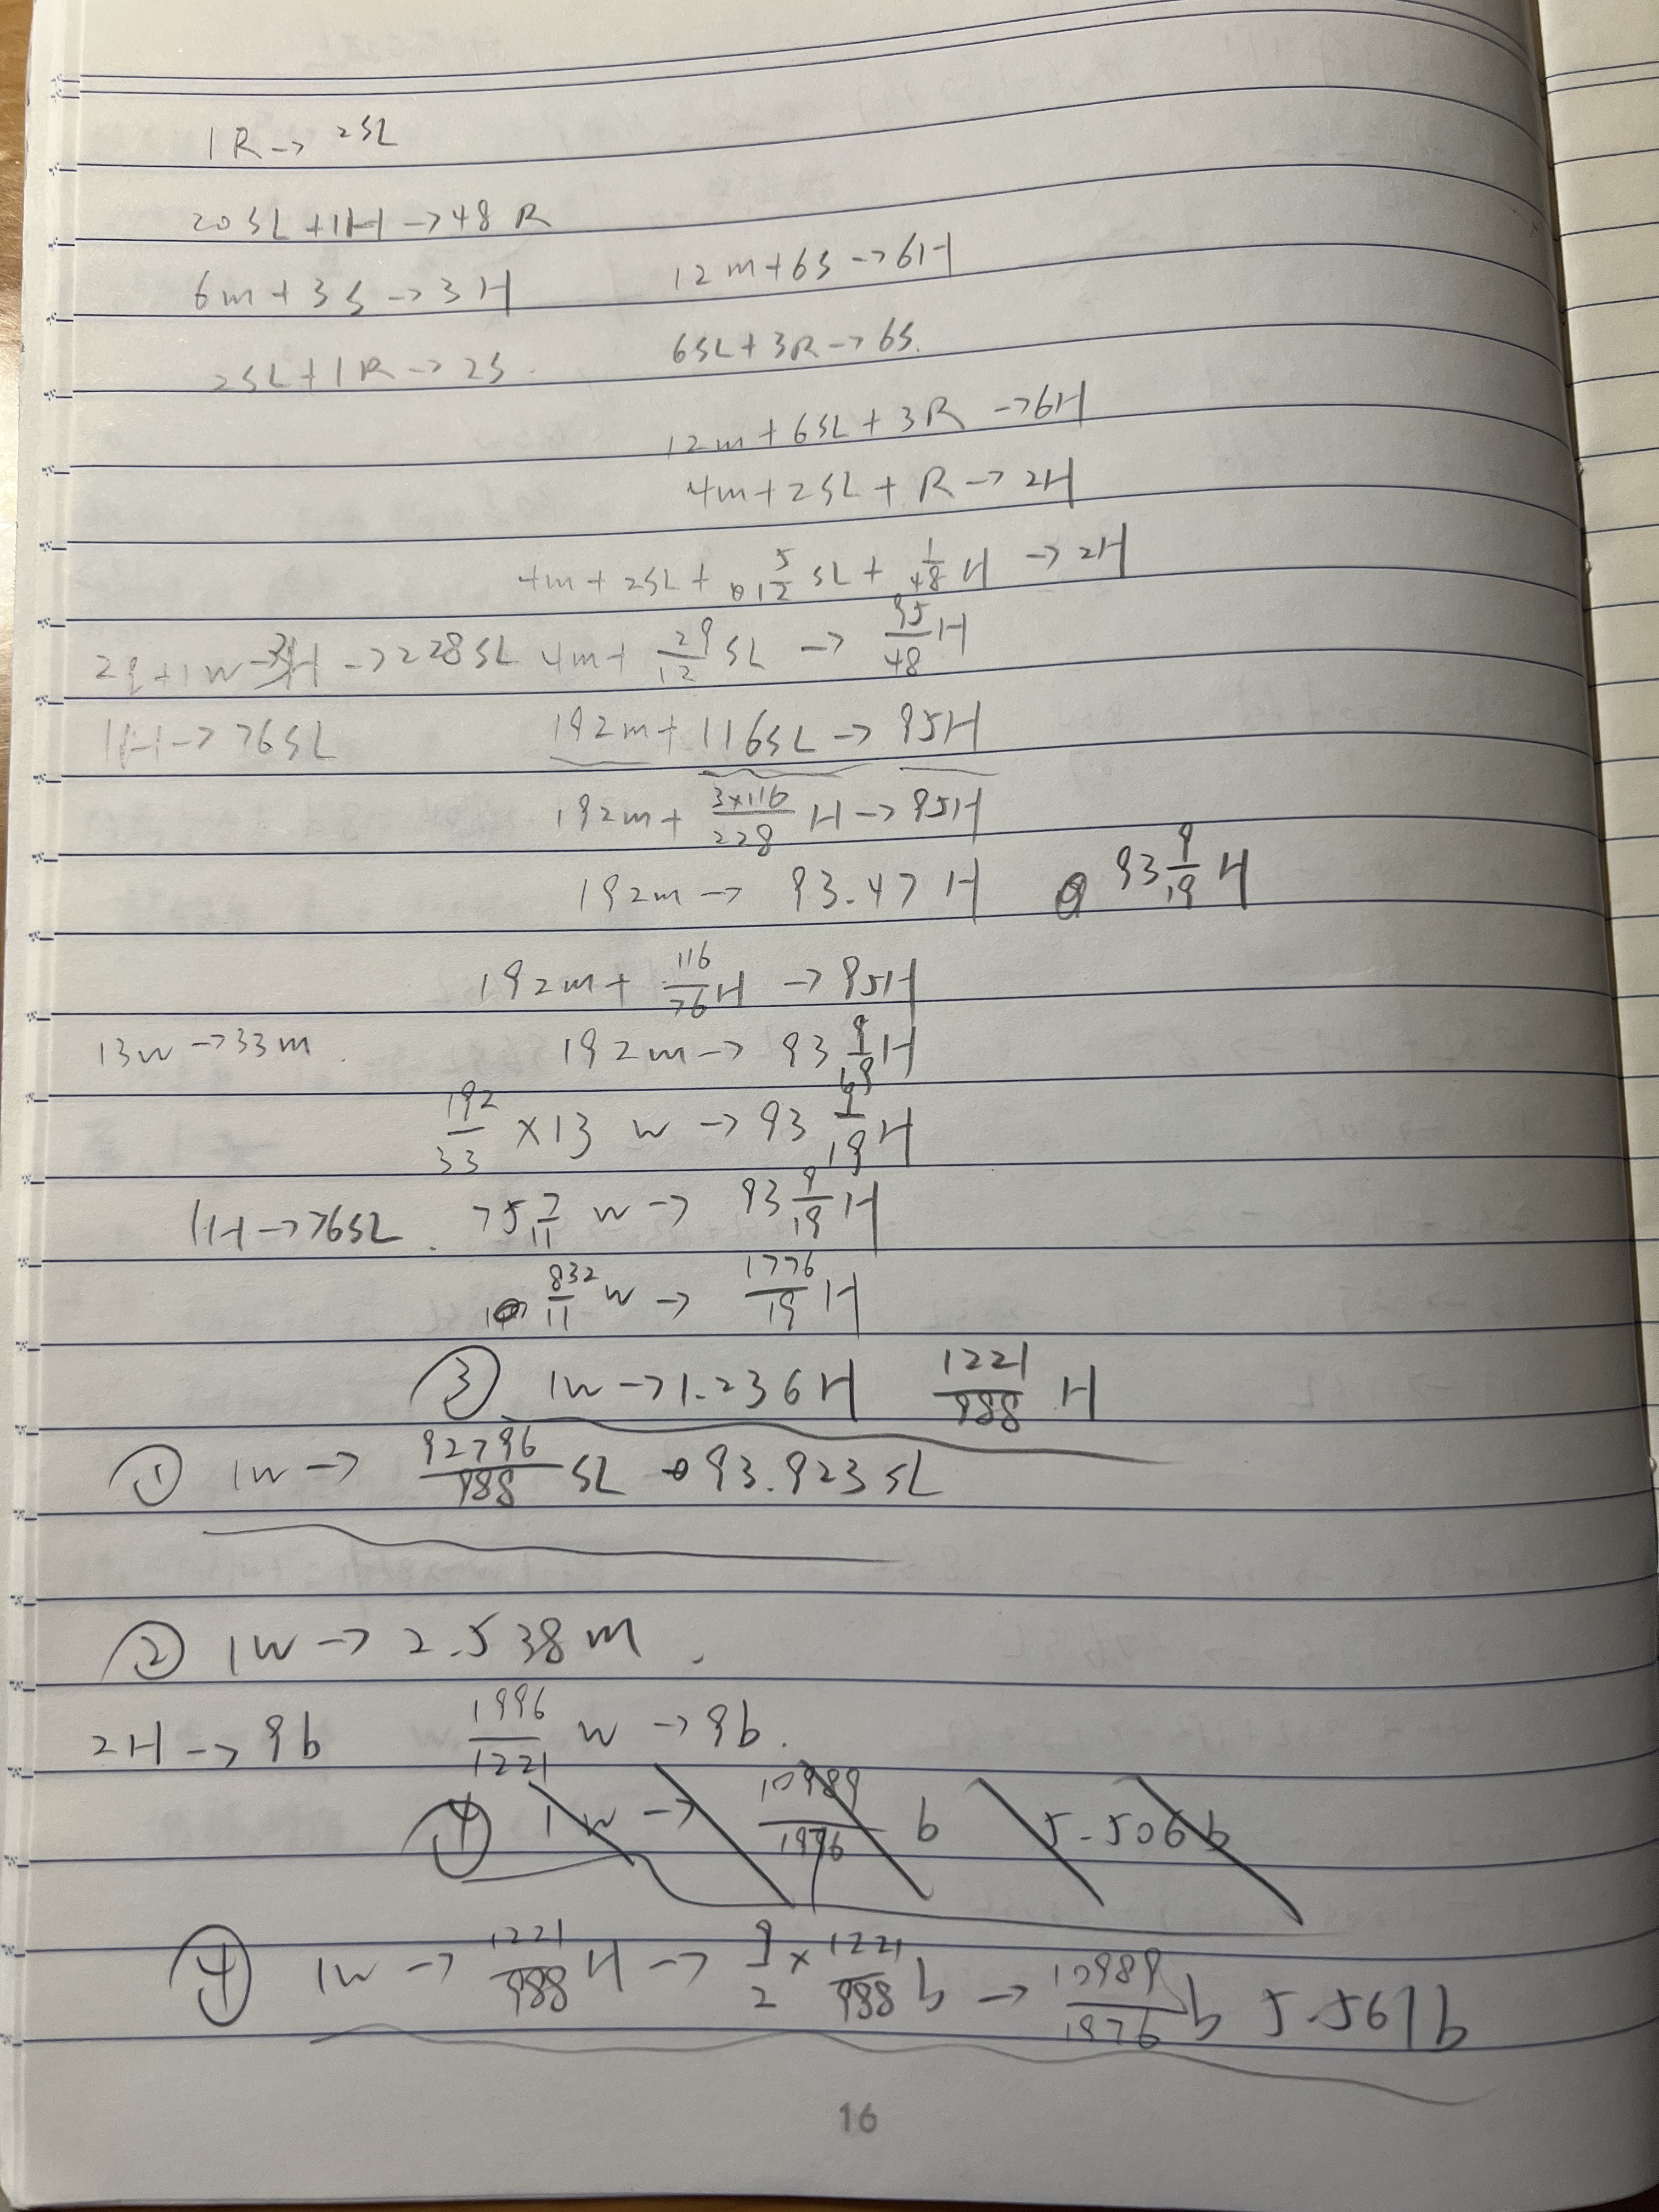 1R → 2SL
20SL + 1H → 48R
6m + 3S → 3H 12m + 6S → 6H
2SL + 1R → 2S. 6SL + 3R → 6S.
12m + 6SL + 3R → 6H
4m + 2SL + R → 2H
4m + 2SL + 5/12 SL + 1/48 H → 2H
3H → 228SL 4m + 29/12 SL → 95/48 H
1H → 76SL 192m + 116SL → 95H
192m + 3×116/228 H → 95H
192m → 93.47H 93 9/19 H
192m + 116/76 H → 95H
13w → 33m. 192m → 93 9/19 H
192/33 × 13 w → 93 9/19 H
1H → 76SL. 75 7/11 w → 93 9/19 H
832/11 w → 1776/19 H
③ 1w → 1.236H 1221/988 H
① 1w → 92796/988 SL 93.923SL
② 1w → 2.538m.
2H → 9b 1996/1221 w → 9b.
④ 1w → 10989/1996 b 5.506b
④ 1w → 1221/988 H → 9/2 × 1221/988 b → 10989/1976 b 5.561b
16